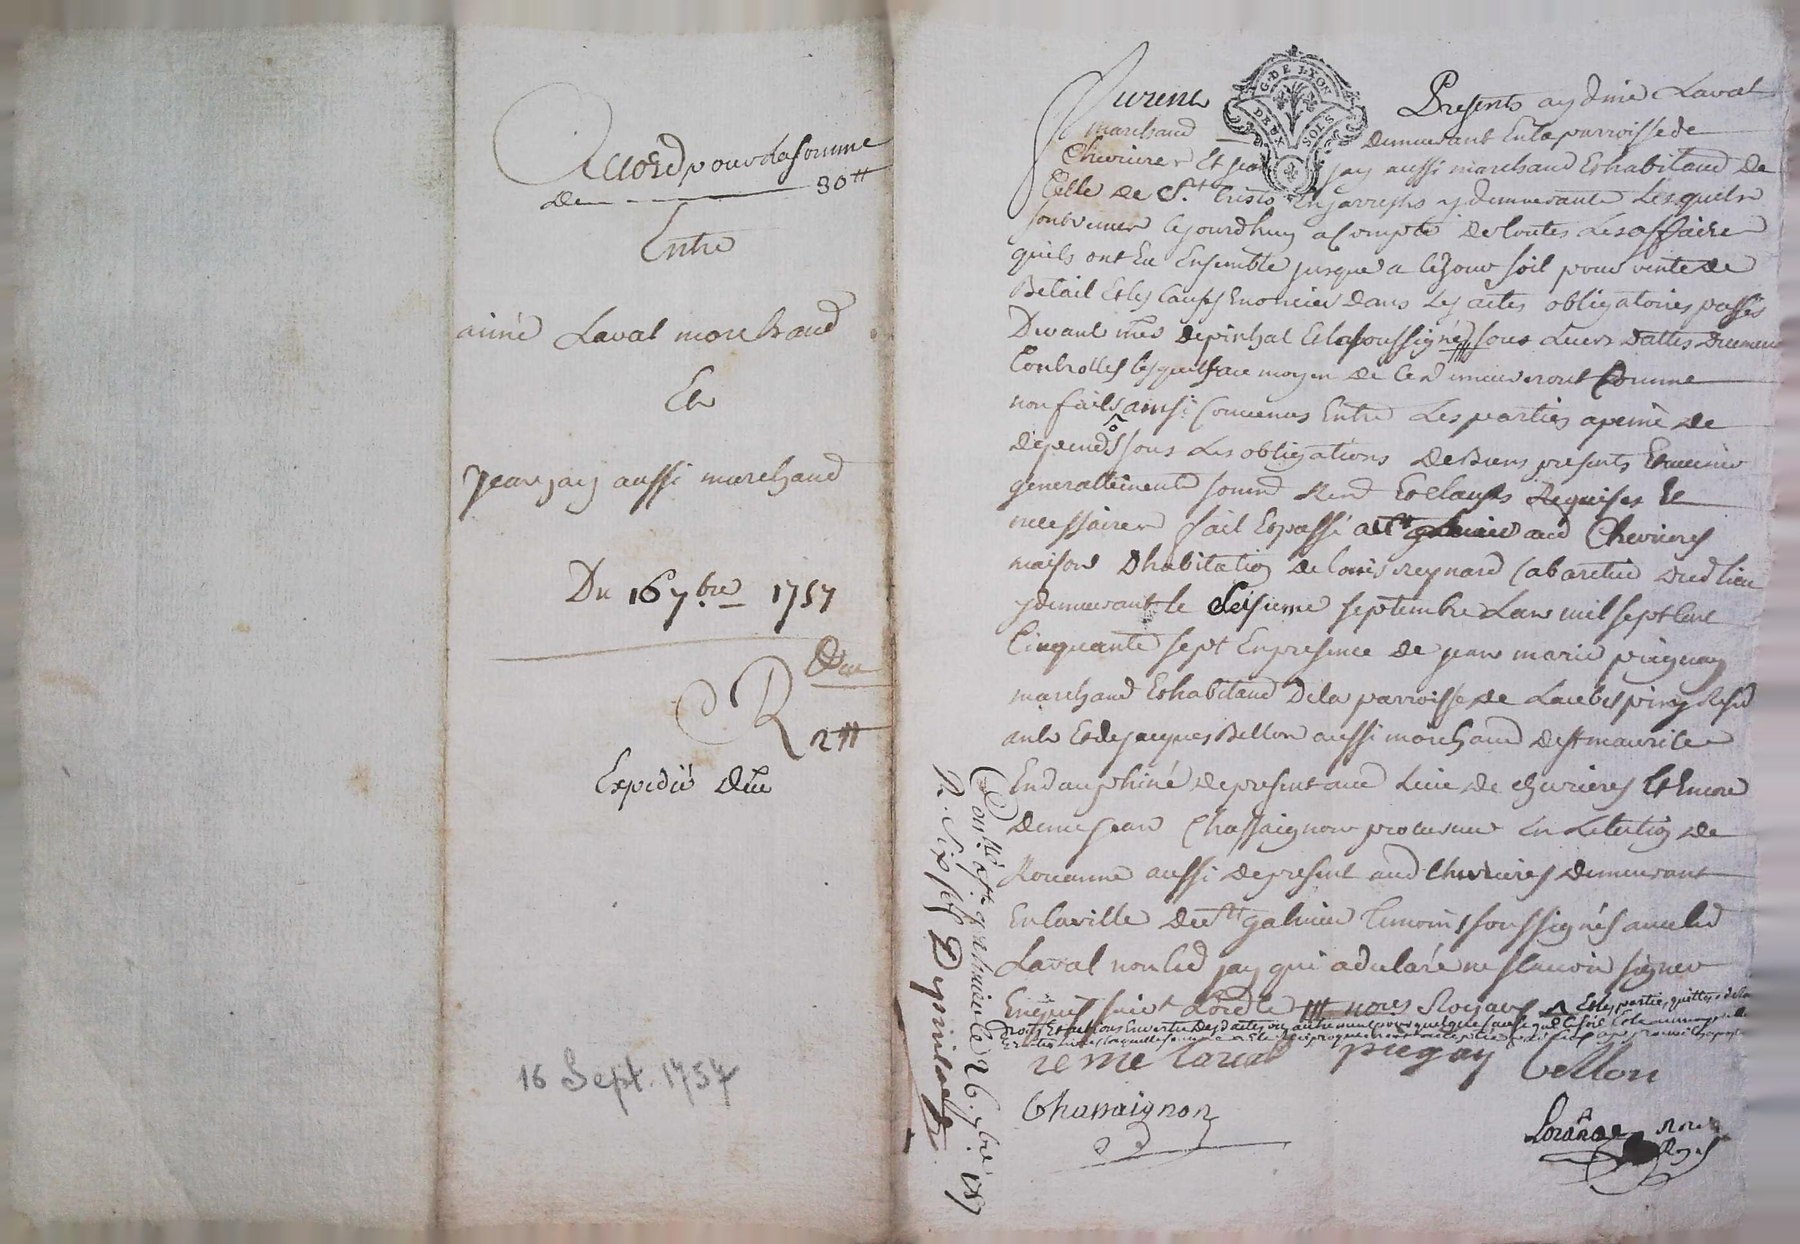 Accord pour la somme
de 30 ᵗᵗ
Entre
aimé Laval marchand
Et
Jean jay aussi marchand
Du 16 7.bre 1757
Due
R 2 ᵗᵗ
Expedié Due
16 Sept. 1757
G. DE LYON
DEUX SOLS
Furent Presents aymé Laval
marchand demeurant En la parroisse de
Chevrieres Et jean jay aussi marchand Et habitand De
Celle de St. y demeurants Lesquels
sont venus Cejourdhuy a Compte de toutes Les affaires
quils ont Eu Ensemble jusque a Ce jour soit pour vente de
Betail Et les Causes Enoncées dans Les actes obligatoires passés
Devant mes depinhac Et le soussigné sous Leurs Dattes Deuement
Controllés lesquels au moyen de Ces demeureront Comme
non faits ainsi Convenus Entre Les parties a peine de
depends sous Les obligations De Biens presents Et avenir
generallement soumis Rend Et Clauses Requises Et
necessaires fait Et passé aud Chevrieres
maison Dhabitation de Louis Reynard Cabaretier Dud lieu
y demeurant le Seisieme septembre Lan mil sept Cent
Cinquante sept En presence de jean marie piegay
marchand Et habitand De la parroisse de
Et de jacques Bellon aussi marchand de st maurice
En dauphiné de present aud Lieu de chevrieres Et Encore
de me jean Chassaignon procureur En Letection de
Rouanne aussi de present aud Chevrieres demeurant
En la ville de st galmier temoins soussignés avec led
Laval non led jay qui a declaré ne scavoir signer
Enquis suivt Lordce Royaux Et les parties quittes de tous
droits Et actions En vertu Desd actes ou autrement pour quelque cause que Ce soit
reme laval piegay Bellon
Chassaignon
Lorange nore Royal
Controllé a st galmier le 26. 7bre 1757
R. Six sols Depinhac